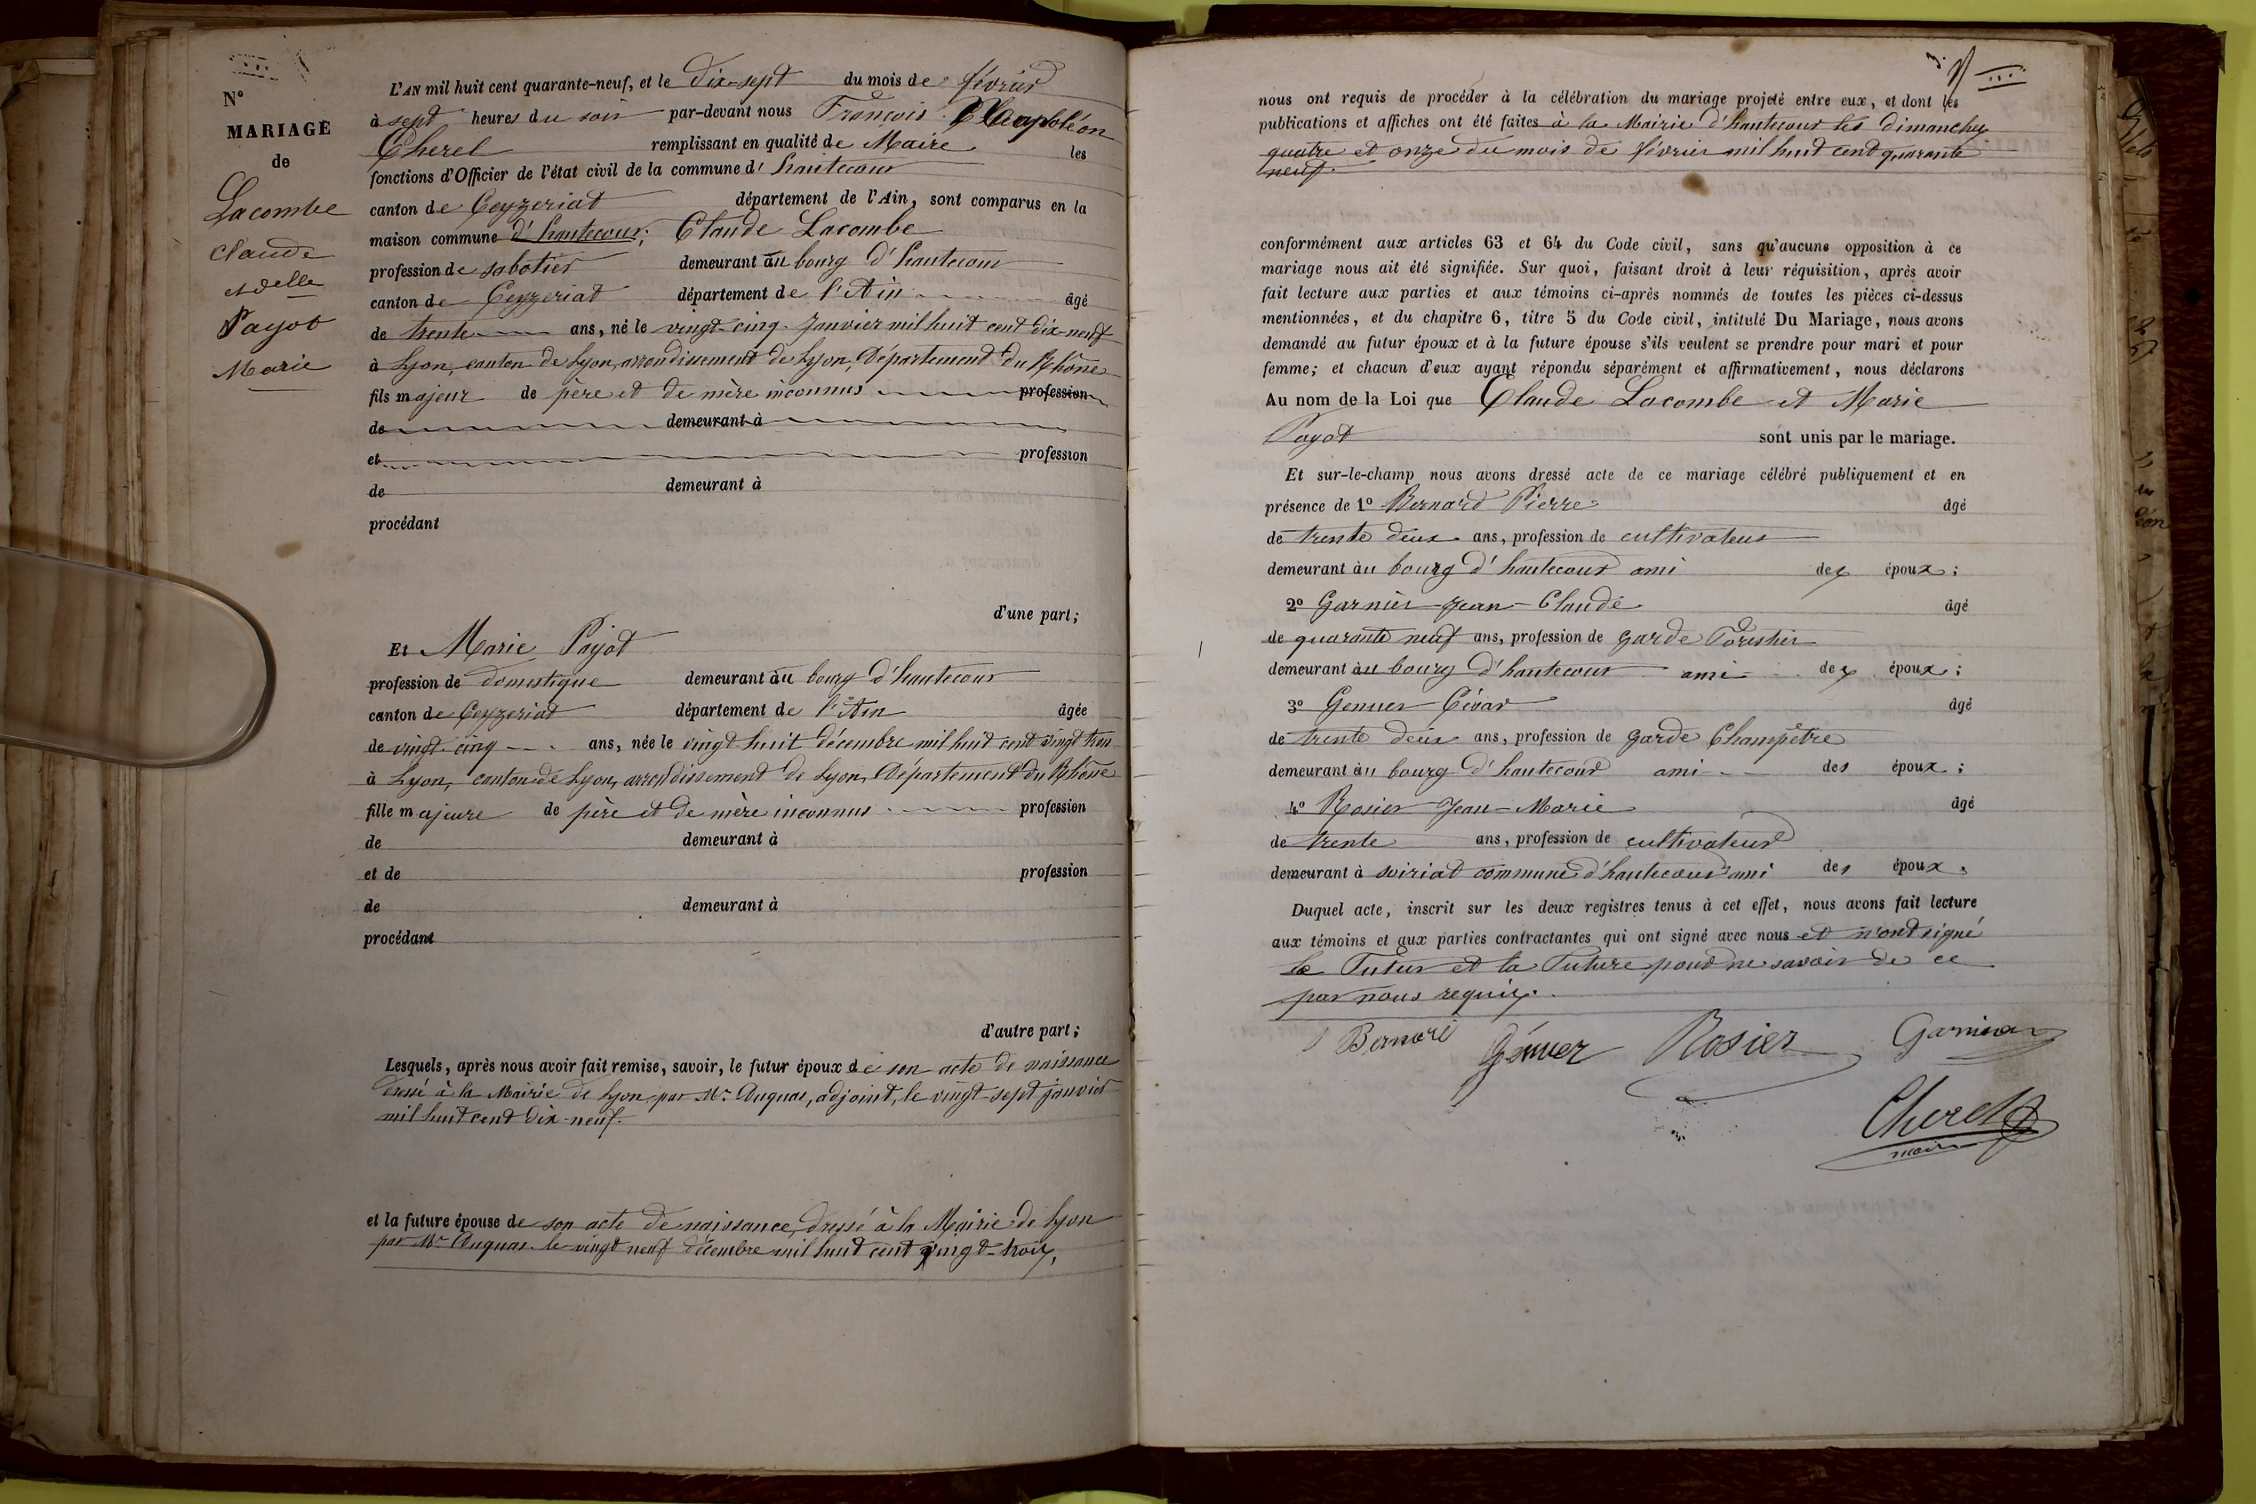 N°
MARIAGE
de
Lacombe
Claude
et delle
Payot
Marie
L'AN mil huit cent quarante-neuf, et le dix-sept du mois de février
à sept heures du soir par-devant nous François Napoléon
Cherel remplissant en qualité de Maire les
fonctions d'Officier de l'état civil de la commune d'hautecour
canton de Ceyzeriat département de l'Ain, sont comparus en la
maison commune d'hautecour; Claude Lacombe
profession de sabotier demeurant au bourg d'hautecour
canton de Ceyzeriat département de l'Ain âgé
de trente ans, né le vingt-cinq Janvier mil huit cent dix-neuf
à Lyon, canton de Lyon, arrondissement de Lyon, Département du Rhône
fils majeur de père et de mère inconnus profession
de demeurant à
et profession
de demeurant à
procédant
d'une part;
Et Marie Payot
profession de domestique demeurant au bourg d'hautecour
canton de Ceyzeriat département de l'Ain âgée
de vingt-cinq ans, née le vingt huit décembre mil huit cent vingt trois
à Lyon, canton de Lyon, arrondissement de Lyon, Département du Rhône
fille majeure de père et de mère inconnus profession
de demeurant à
et de profession
de demeurant à
procédant
d'autre part;
Lesquels, après nous avoir fait remise, savoir, le futur époux de son acte de naissance
dressé à la Mairie de Lyon par Mr. , adjoint, le vingt-sept janvier
mil huit cent dix-neuf.
et la future épouse de son acte de naissance, dressé à la Mairie de Lyon
par Mr le vingt neuf décembre mil huit cent vingt-trois,
nous ont requis de procéder à la célébration du mariage projeté entre eux, et dont les
publications et affiches ont été faites à la Mairie d'hautecour les dimanches
quatre et onze du mois de février mil huit cent quarante
neuf.
conformément aux articles 63 et 64 du Code civil, sans qu'aucune opposition à ce
mariage nous ait été signifiée. Sur quoi, faisant droit à leur réquisition, après avoir
fait lecture aux parties et aux témoins ci-après nommés de toutes les pièces ci-dessus
mentionnées, et du chapitre 6, titre 5 du Code civil, intitulé Du Mariage, nous avons
demandé au futur époux et à la future épouse s'ils veulent se prendre pour mari et pour
femme; et chacun d'eux ayant répondu séparément et affirmativement, nous déclarons
Au nom de la Loi que Claude Lacombe et Marie
Payot sont unis par le mariage.
Et sur-le-champ nous avons dressé acte de ce mariage célébré publiquement et en
présence de 1° Bernard Pierre âgé
de trente deux ans, profession de cultivateur
demeurant au bourg d'hautecour ami des époux;
2° Garnier Jean-Claude âgé
de quarante neuf ans, profession de garde Forestier
demeurant au bourg d'hautecour ami des époux;
3° âgé
de trente deux ans, profession de garde Champêtre
demeurant au bourg d'hautecour ami des époux;
4° Rosier Jean-Marie âgé
de trente ans, profession de cultivateur
demeurant à soiriat commune d'hautecour ami des époux.
Duquel acte, inscrit sur les deux registres tenus à cet effet, nous avons fait lecture
aux témoins et aux parties contractantes qui ont signé avec nous et n'ont signé
le Futur et la Future pour ne savoir de ce
par nous requis.
Rosier
Cherel
maire